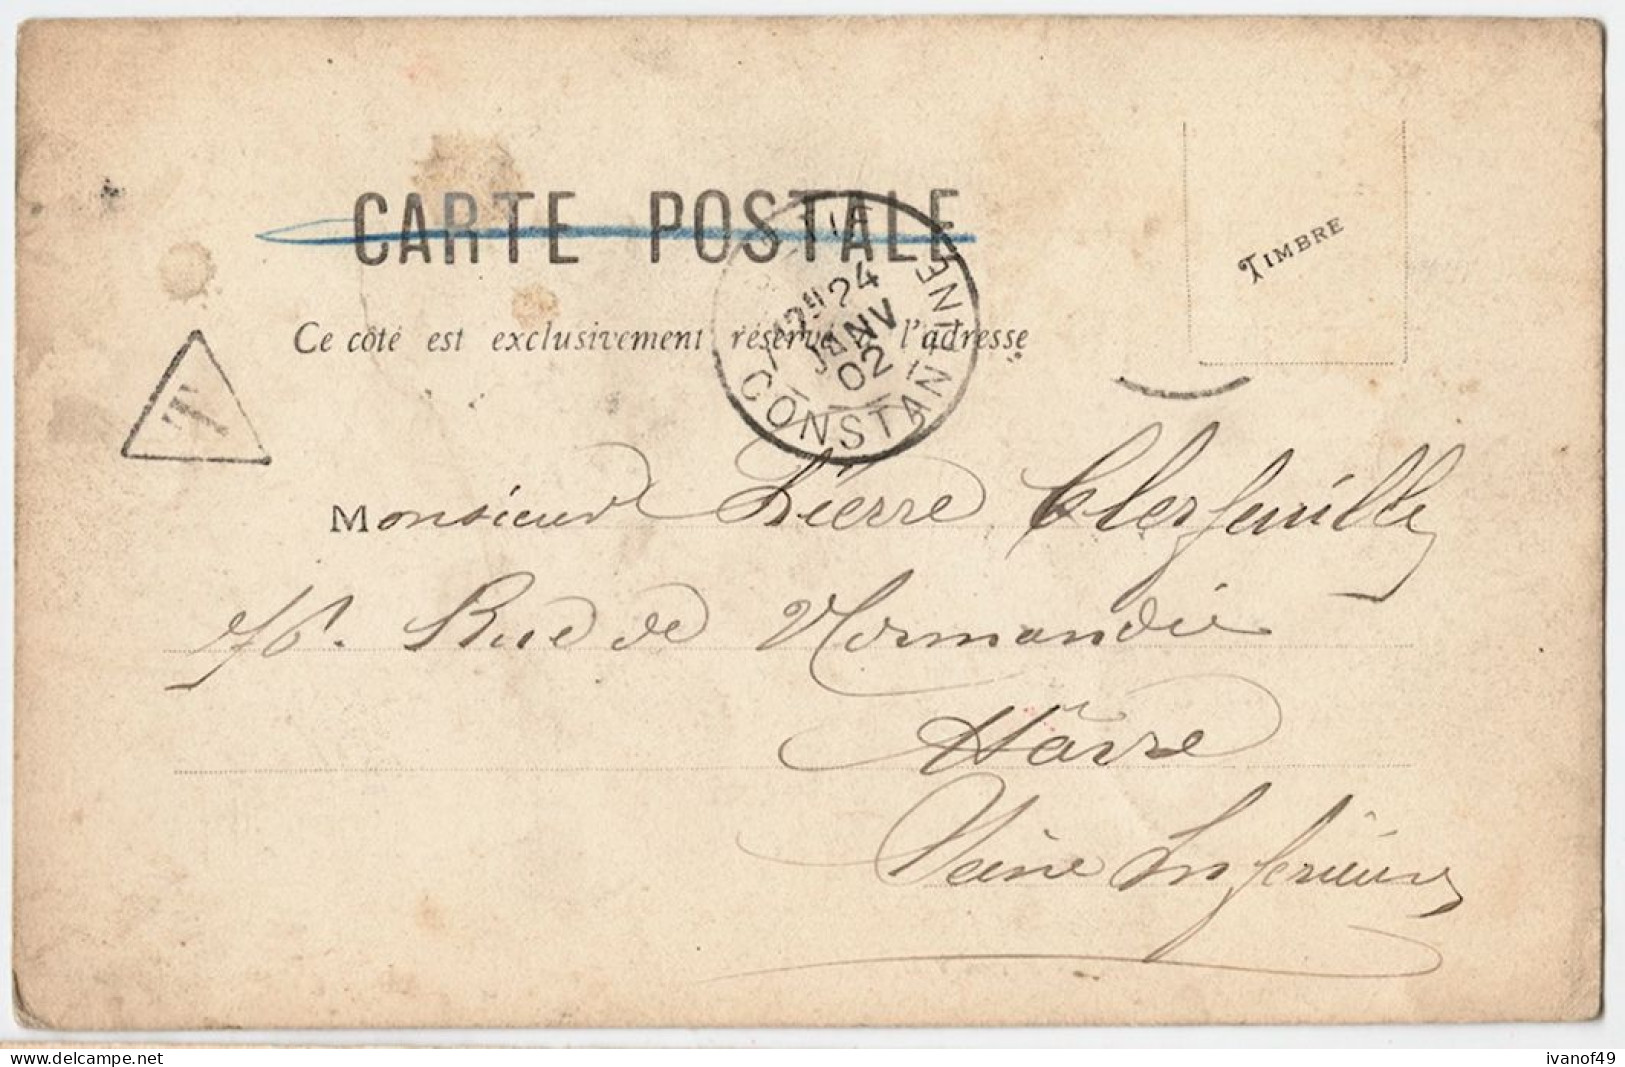 CARTE POSTALE
Ce côté est exclusivement réservé à l'adresse
TIMBRE
T
CONSTANTINE
24
JANV
02
Monsieur Pierre Clerfeuille
76. Rue de Normandie
Hâvre
Seine Inférieure
www.delcampe.net
ivanof49